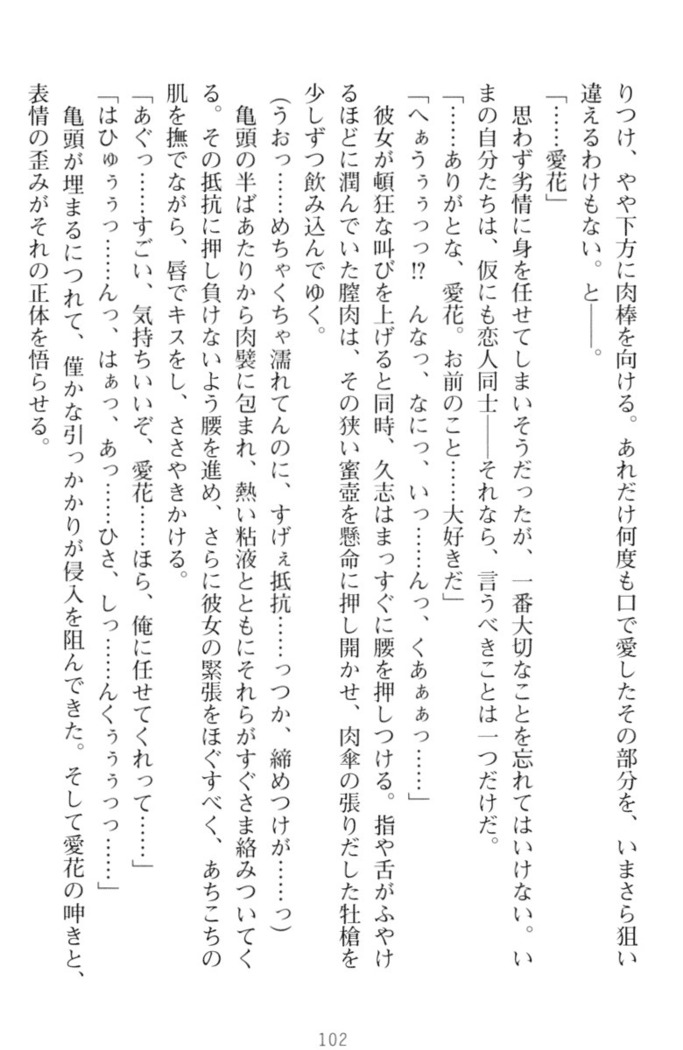 りつけ、やや下方に肉棒を向ける。あれだけ何度も口で愛したその部分を、いまさら狙い
違えるわけもない。と――。
「……愛花」
思わず劣情に身を任せてしまいそうだったが、一番大切なことを忘れてはいけない。い
まの自分たちは、仮にも恋人同士――それなら、言うべきことは一つだけだ。
「……ありがとな、愛花。お前のこと……大好きだ」
「へぁうぅぅっっ!?　んなっ、なにっ、いっ……んっ、くあぁぁっ……」
彼女が頓狂な叫びを上げると同時、久志はまっすぐに腰を押しつける。指や舌がふやけ
るほどに潤んでいた膣肉は、その狭い蜜壺を懸命に押し開かせ、肉傘の張りだした牡槍を
少しずつ飲み込んでゆく。
(うおっ……めちゃくちゃ濡れてんのに、すげぇ抵抗……っつか、締めつけが……っ)
亀頭の半ばあたりから肉襞に包まれ、熱い粘液とともにそれらがすぐさま絡みついてく
る。その抵抗に押し負けないよう腰を進め、さらに彼女の緊張をほぐすべく、あちこちの
肌を撫でながら、唇でキスをし、ささやきかける。
「あぐっ……すごい、気持ちいいぞ、愛花……ほら、俺に任せてくれって……」
「はひゅぅぅっ……んっ、はぁっ、あっ……ひさ、しっ……んくぅぅぅっっ……」
亀頭が埋まるにつれて、僅かな引っかかりが侵入を阻んできた。そして愛花の呻きと、
表情の歪みがそれの正体を悟らせる。
102